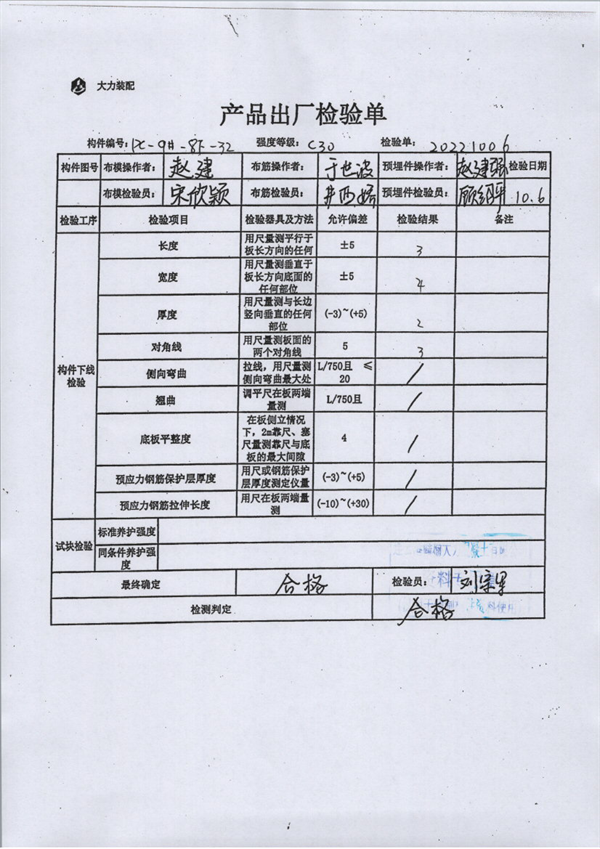 大力装配
产品出厂检验单
构件编号: PC-9#-8F-32 强度等级: C30 检验单: 20221006
构件图号 布模操作者: 赵建 布筋操作者: 于世波 预埋件操作者: 赵建强 检验日期
布模检验员: 宋欣颖 布筋检验员: 预埋件检验员: 10.6
检验工序 检验项目 检验器具及方法 允许偏差 检验结果 备注
构件下线检验
长度 用尺量测平行于板长方向的任何 ±5 3
宽度 用尺量测垂直于板长方向底面的任何部位 ±5 4
厚度 用尺量测与长边竖向垂直的任何部位 (-3)~(+5) 2
对角线 用尺量测板面的两个对角线 5 3
侧向弯曲 拉线，用尺量测侧向弯曲最大处 L/750且 ≤20 /
翘曲 调平尺在板两端量测 L/750且 /
底板平整度 在板侧立情况下，2m靠尺、塞尺量测靠尺与底板的最大间隙 4 /
预应力钢筋保护层厚度 用尺或钢筋保护层厚度测定仪量 (-3)~(+5) /
预应力钢筋拉伸长度 用尺在板两端量测 (-10)~(+30) /
试块检验 标准养护强度
同条件养护强度
最终确定 合格 检验员:
检测判定 合格